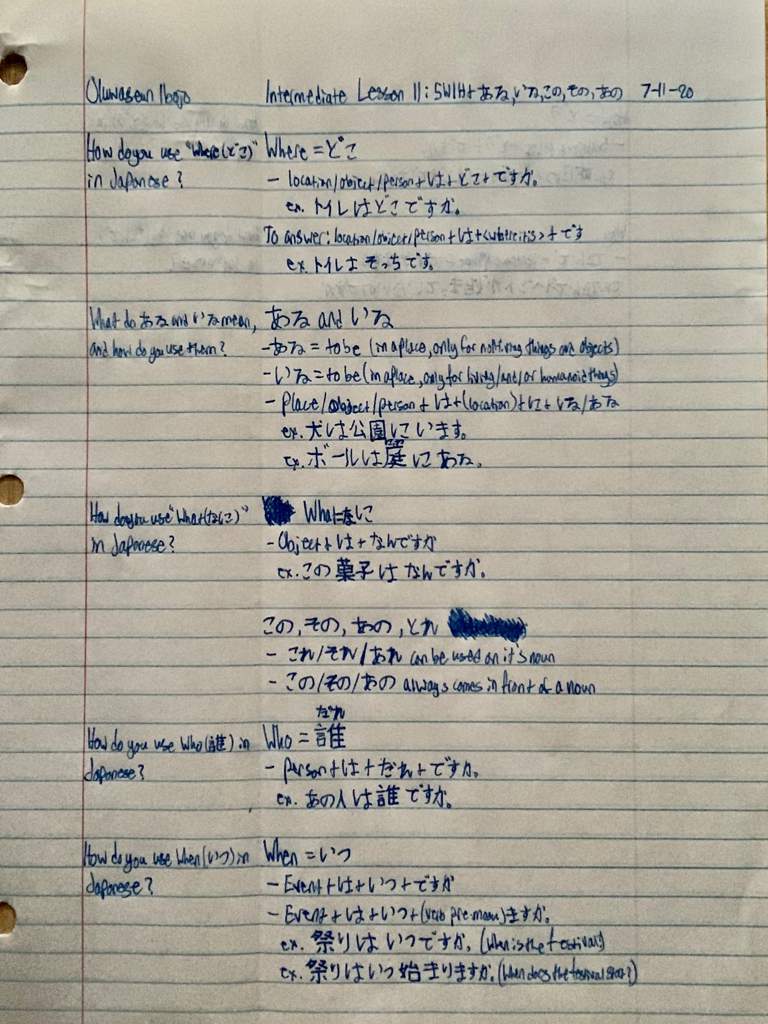 Oluwaseun Ibojo Intermediate Lesson 11: 5W1H + ある, いる, この, その, あの 7-11-20
How do you use "Where(どこ)" Where = どこ
in Japanese? - location/object/person + は + どこ + ですか。
ex. トイレはどこですか。
To answer: location/object/person + は + <where it is> + です
ex. トイレはそっちです。
What do ある and いる mean, ある and いる
and how do you use them? - ある = to be (in a place, only for nonliving things and objects)
- いる = to be (in a place, only for living/and/or humanoid things)
- Place/object/person + は + (location) + に + いる/ある
ex. 犬は公園にいます。
ex. ボールは庭にある。
How do you use "What(なに)" What = なに
in Japanese? - Object + は + なんですか
ex. この菓子はなんですか。
この, その, あの, どれ
- これ/それ/あれ can be used on it's noun
- この/その/あの always comes in front of a noun
だれ
How do you use Who(誰) in Who = 誰
Japanese? - person + は + だれ + ですか。
ex. あの人は誰ですか。
How do you use When(いつ) in When = いつ
Japanese? - Event + は + いつ + ですか
- Event + は + いつ + (verb pre-masu) ますか。
ex. 祭りはいつですか。(When is the festival?)
ex. 祭りはいつ始まりますか。(When does the festival start?)